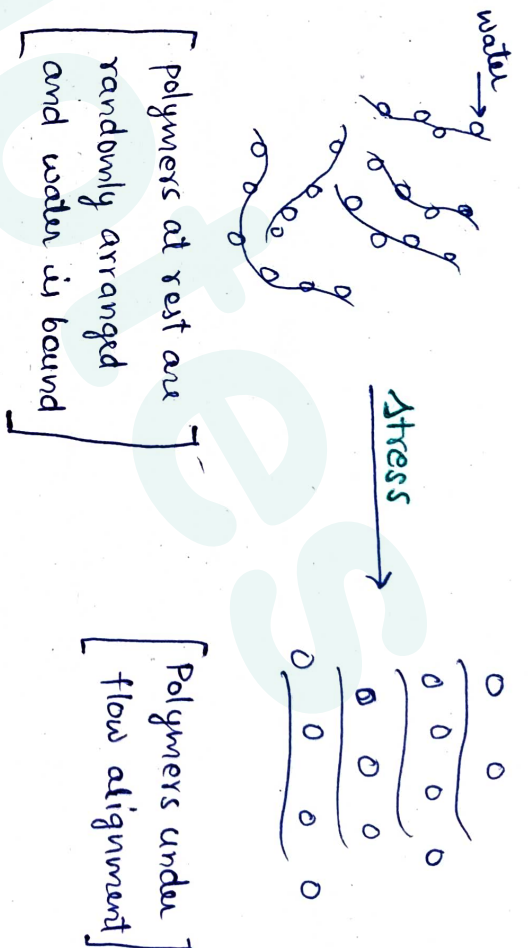 water
stress
[polymers at rest are
randomly arranged
and water is bound]
[Polymers under
flow alignment]